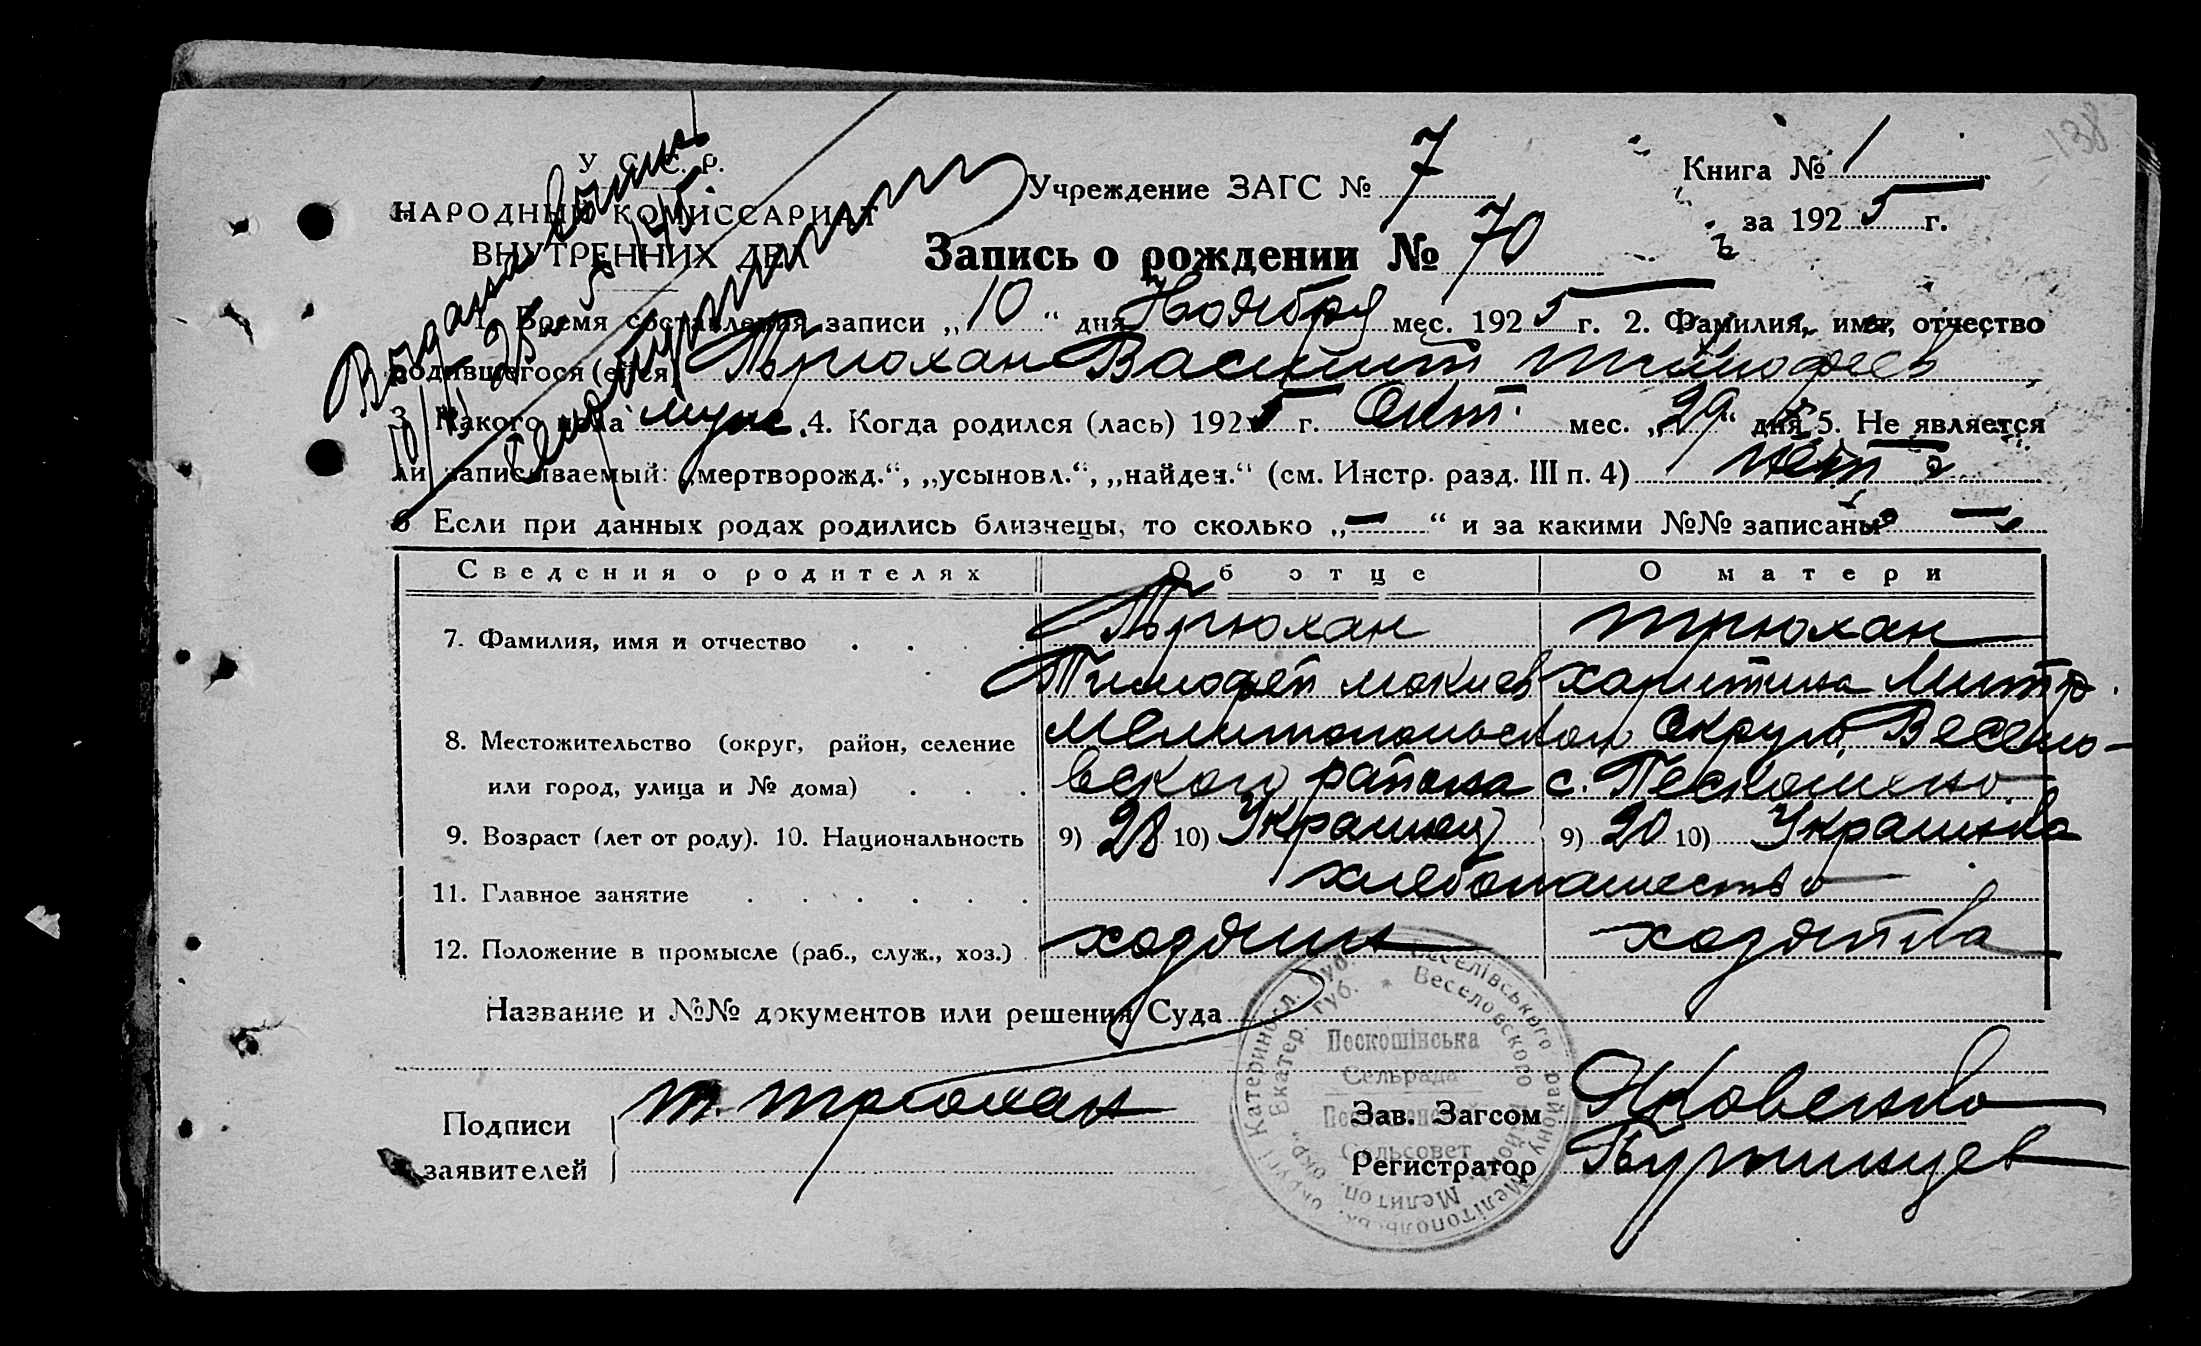 138
У. С. С. Р.
НАРОДНЫЙ КОМИССАРИАТ
ВНУТРЕННИХ ДЕЛ
Учреждение ЗАГС № 7
Книга № 1
за 1925 г.
Запись о рождении № 70
1. Время составления записи „10“ дня Ноября мес. 1925 г. 2. Фамилия, имя, отчество
родившегося (ейся) Трюхан Василий Тимофеев
3. Какого пола муж. 4. Когда родился (лась) 1925 г. Окт. мес. „29“ дня 5. Не является
ли записываемый: „мертворожд.“, „усыновл.“, „найден.“ (см. Инстр. разд. III п. 4) нет
6 Если при данных родах родились близнецы, то сколько „—“ и за какими №№ записаны —
Сведения о родителях Об отце О матери
7. Фамилия, имя и отчество Трюхан Трюхан
Тимофей Мокиев Харитина Митр.
8. Местожительство (округ, район, селение Мелитопольского Округа, Весело-
или город, улица и № дома) вского района с. Пескошено
9. Возраст (лет от роду). 10. Национальность 9) 28 10) Украинец 9) 20 10) Украинка
11. Главное занятие хлебопашество
12. Положение в промысле (раб., служ., хоз.) хозяин хозяйка
Название и №№ документов или решения Суда
Подписи
заявителей
Т. Трюхан
Зав. Загсом Яковенко
Регистратор
Пескошінська
Сельрада
Сельсовет
Веселівського району Мелітопольськ. округі Катериносл. губ.
Веселовского Мелитоп. окр. Екатер. губ.